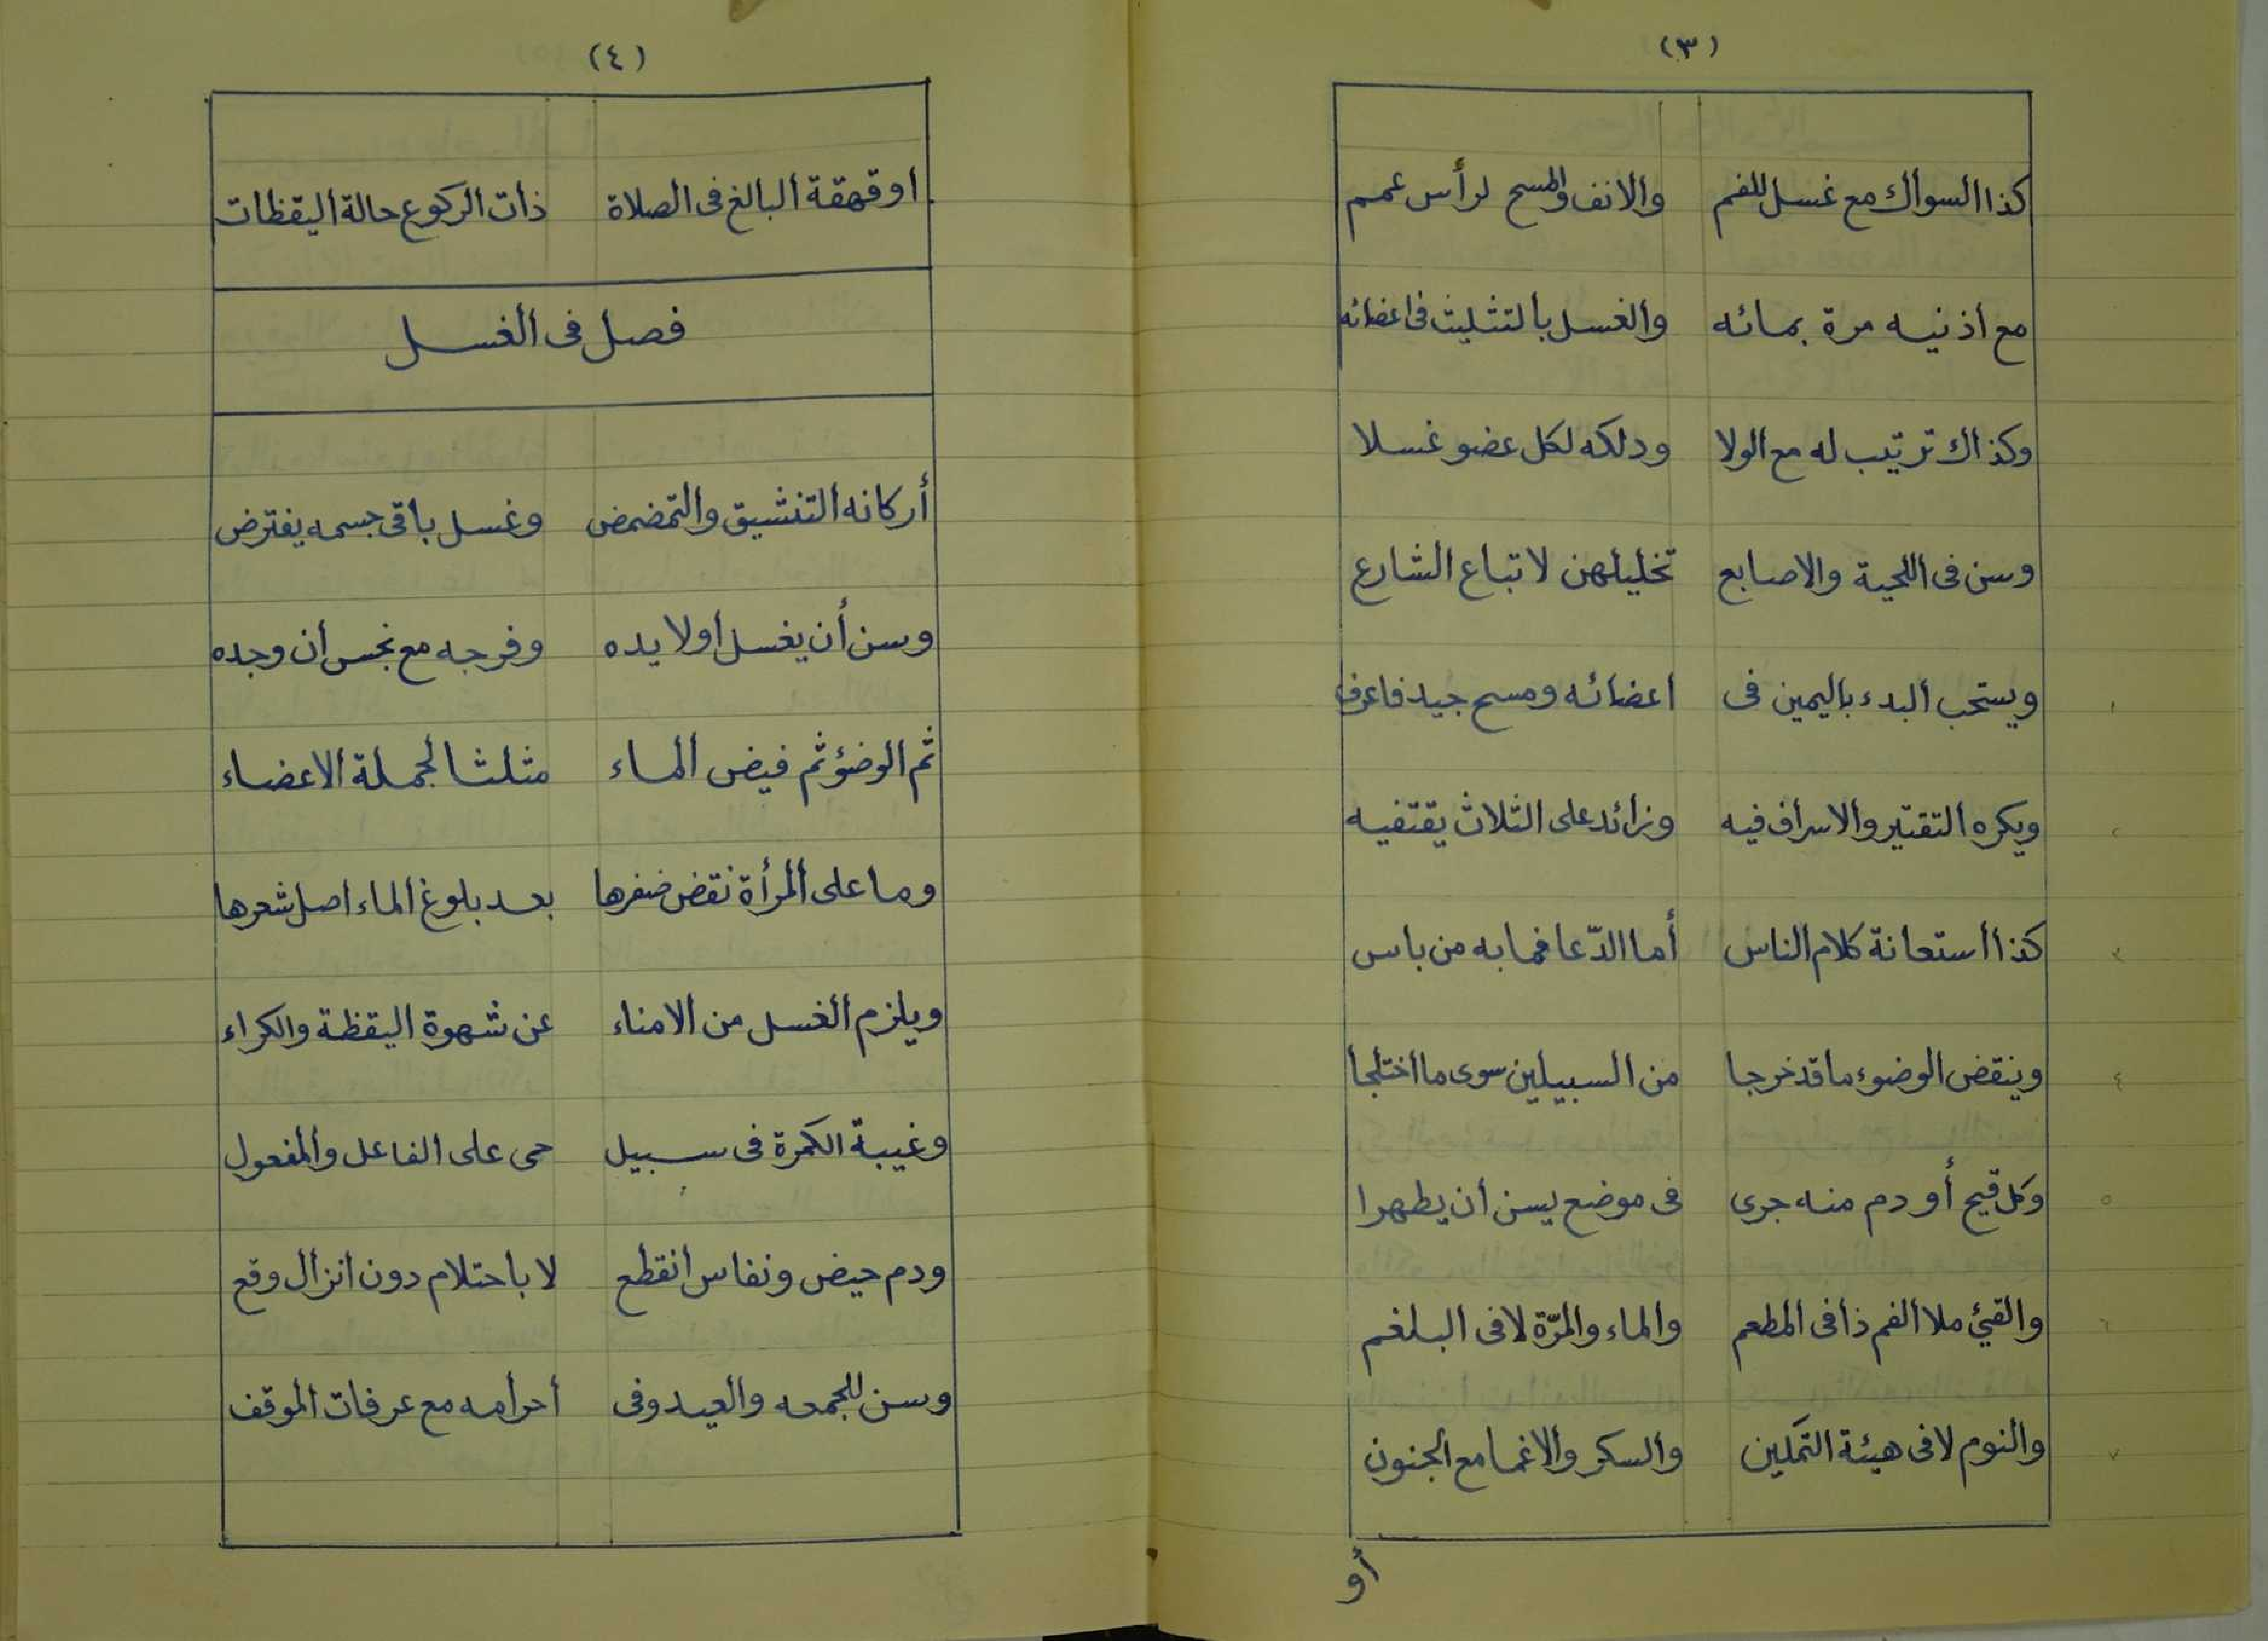 (٣)
كذا السواك مع غسل للفم والانف والمسح لرأس عمم
مع اذنيه مرة بمائه والغسل بالتثليث فى اعضائه
وكذاك ترتيب له مع الولا ودلكه لكل عضو غسلا
وسن فى اللحية والاصابع تخليلهن لاتباع الشارع
ويستحب البدء باليمين فى اعضائه ومسح جيد فاعرف
ويكره التقتير والاسراف فيه وزائد على الثلاث يقتفيه
كذا أستعانة كلام الناس أما الدّعا فما به من باس
وينقض الوضوء ما قد خرجا من السبيلين سوى ما اختلجا
وكل قيح أو دم منه جرى فى موضع يسن ان يطهرا
والقئ ملا الفم ذا فى المطعم والماء والمرّة لا فى البلغم
والنوم لا فى هيئة التمكين والسكر والاغما مع الجنون
أو
(٤)
او قهقة البالغ فى الصلاة ذات الركوع حالة اليقظات
فصل فى الغسل
أركانه التنشيق والتمضمض وغسل باقى جسمه يفترض
وسن أن يغسل اولا يده وفرجه مع نجس ان وجده
ثم الوضؤ ثم فيض الماء مثلثا لجملة الاعضاء
وما على المرأة نقض ضفرها بعد بلوغ الماء اصل شعرها
ويلزم الغسل من الامناء عن شهوة اليقظة والكراء
وغيبة الكمرة فى سبيل حى على الفاعل والمفعول
ودم حيض ونفاس انقطع لا باحتلام دون انزال وقع
وسن للجمعه والعيد وفى أحرامه مع عرفات الموقف